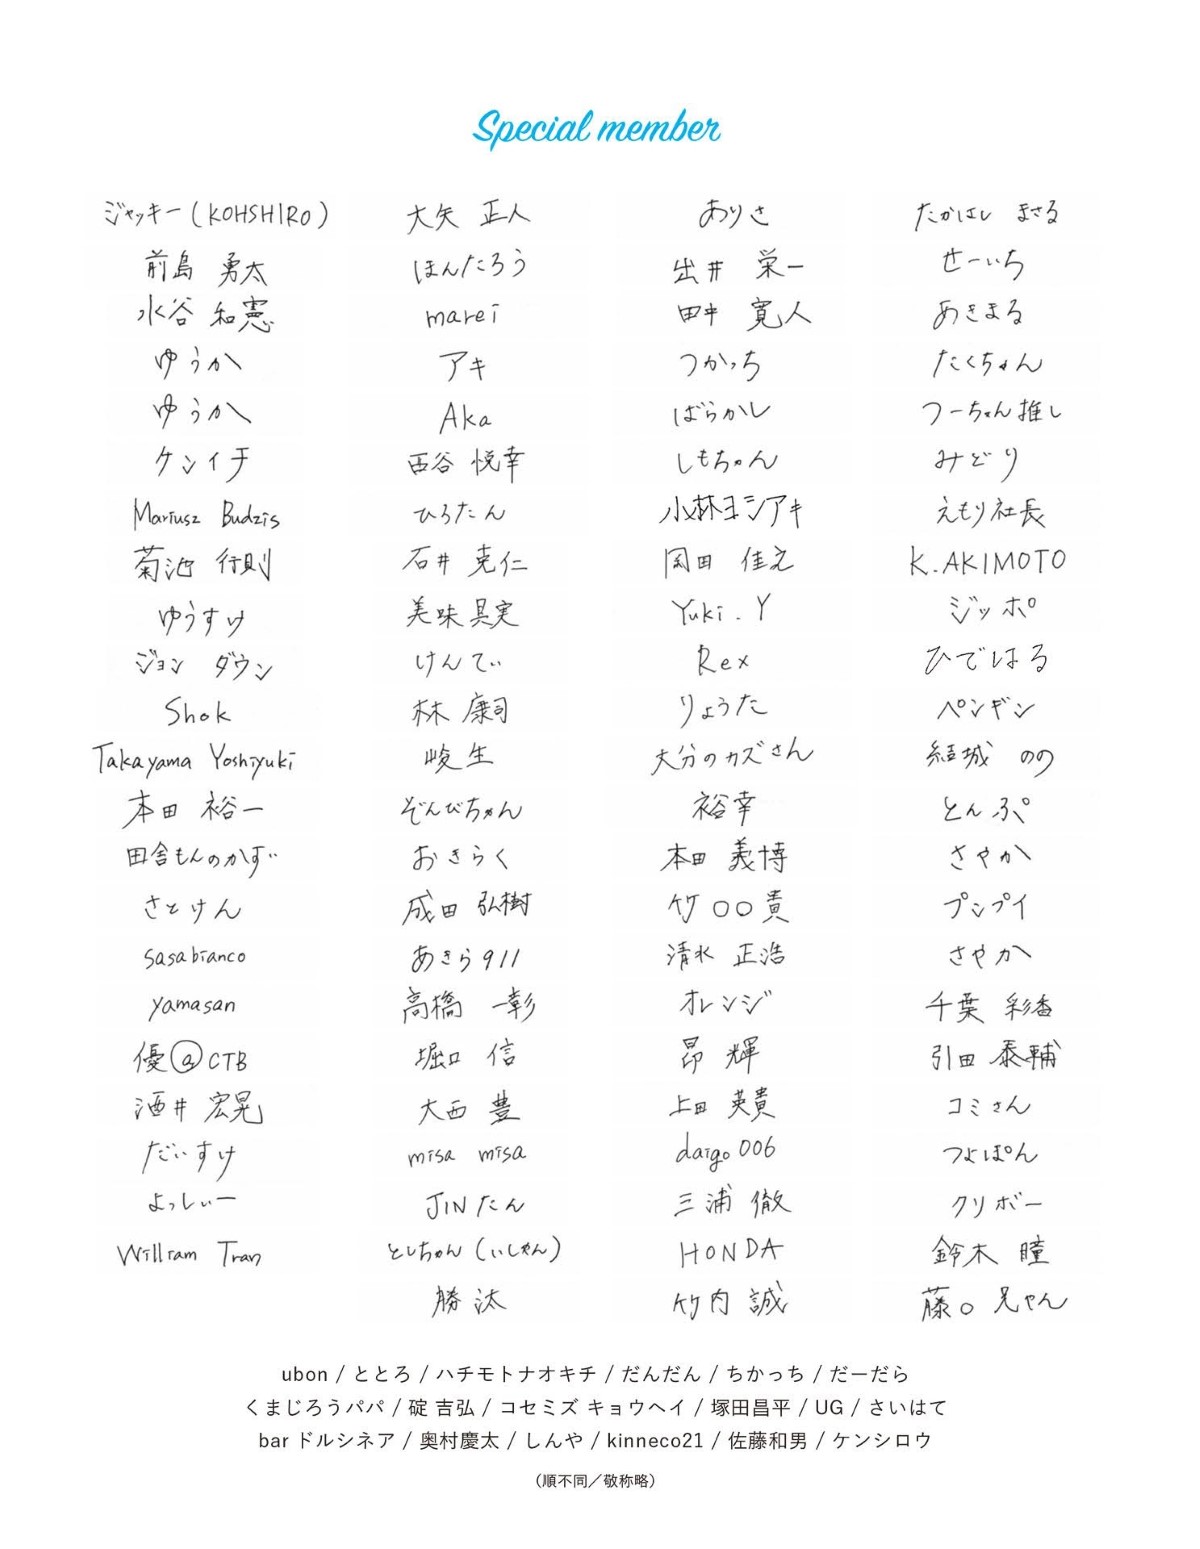 Special member
ジャッキー(KOHSHIRO)
前島 勇太
水谷 和憲
ゆうか
ゆうか
ケンイチ
Mariusz Budzis
菊池 行則
ゆうすけ
ジョン ダウン
Shok
Takayama Yoshiyuki
本田 裕一
田舎もんのかずー
さとけん
sasabianco
yamasan
優@CTB
酒井 宏晃
だいすけ
よっしぃー
William Tran
大矢 正人
ほんたろう
marei
アキ
Aka
西谷 悦幸
ひろたん
石井 克仁
美味具実
けんてぃ
林 康司
峻生
ぞんびちゃん
おきらく
成田 弘樹
あきら911
高橋 一彰
堀口 信
大西 豊
misa misa
JINたん
としちゃん(いしやん)
勝汰
ありさ
出井 栄一
田中 寛人
つかっち
ばらかし
しもちゃん
小林ヨシアキ
岡田 佳之
Yuki.Y
Rex
りょうた
大分のカズさん
裕幸
本田 義博
竹〇〇貴
清水 正浩
オレンジ
昂輝
上田 英貴
daigo006
三浦 徹
HONDA
竹内 誠
たかはし まさる
せーいち
あきまる
たくちゃん
つーちゃん推し
みどり
えもり社長
K.AKIMOTO
ジッポ
ひではる
ペンギン
結城 のの
とんぷ
さやか
プンプイ
さやか
千葉 彩香
引田 泰輔
コミさん
つよぽん
クリボー
鈴木 瞳
藤〇 兄やん
ubon / ととろ / ハチモトナオキチ / だんだん / ちかっち / だーだら
くまじろうパパ / 碇 吉弘 / コセミズ キョウヘイ / 塚田昌平 / UG / さいはて
bar ドルシネア / 奥村慶太 / しんや / kinneco21 / 佐藤和男 / ケンシロウ
(順不同／敬称略)